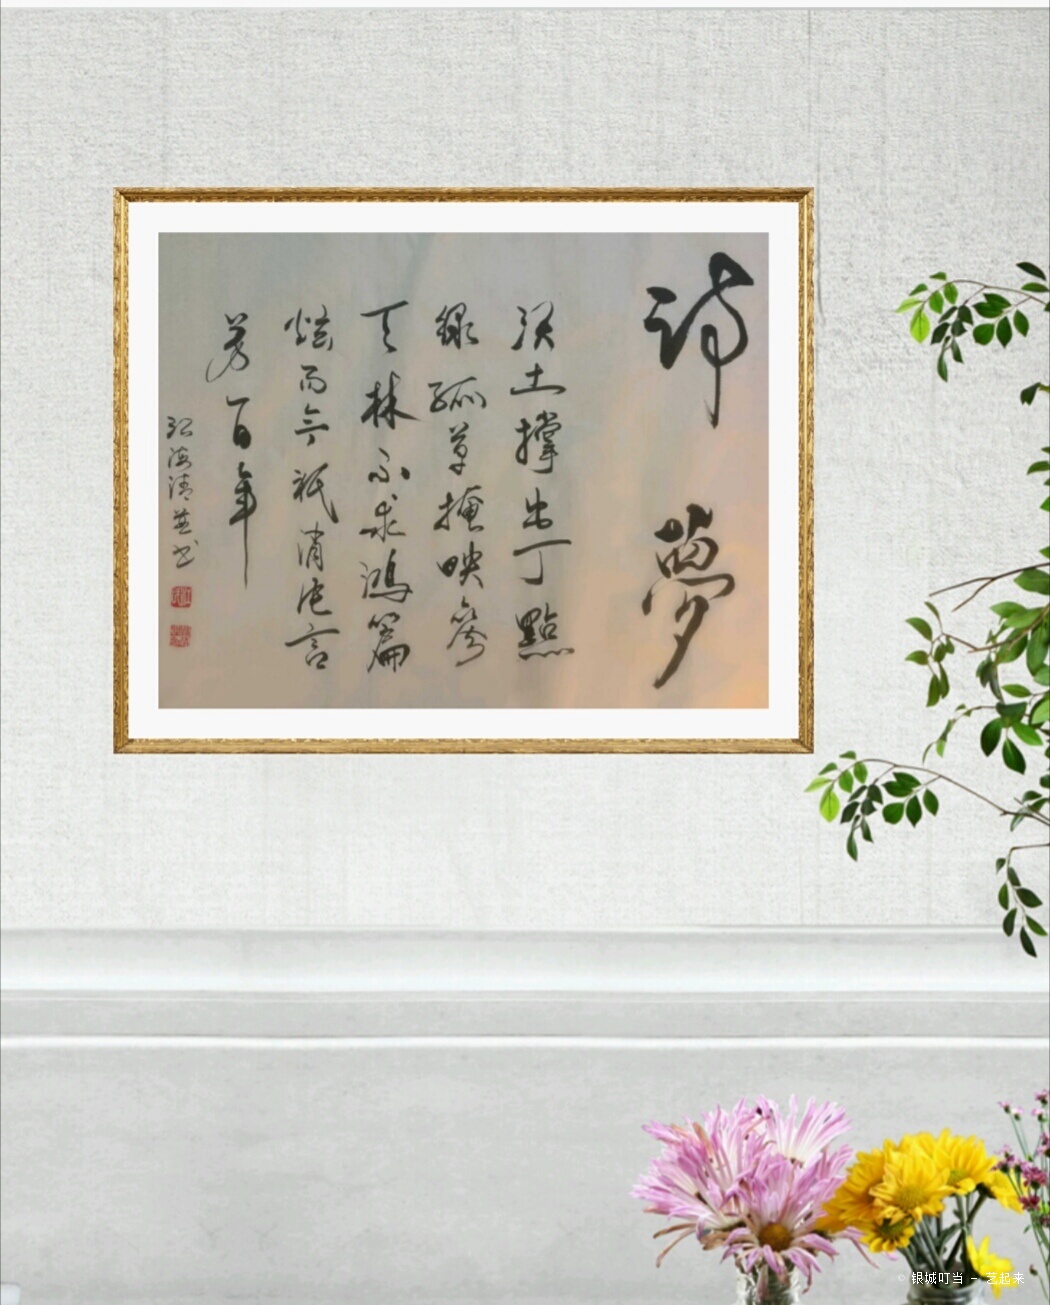 詩夢
沃土撐出丁點
綠孤草掩映穹
天林不求鴻篇
炫而今祇消片言
芳百年
海清並書
© 银城叮当 - 艺起来